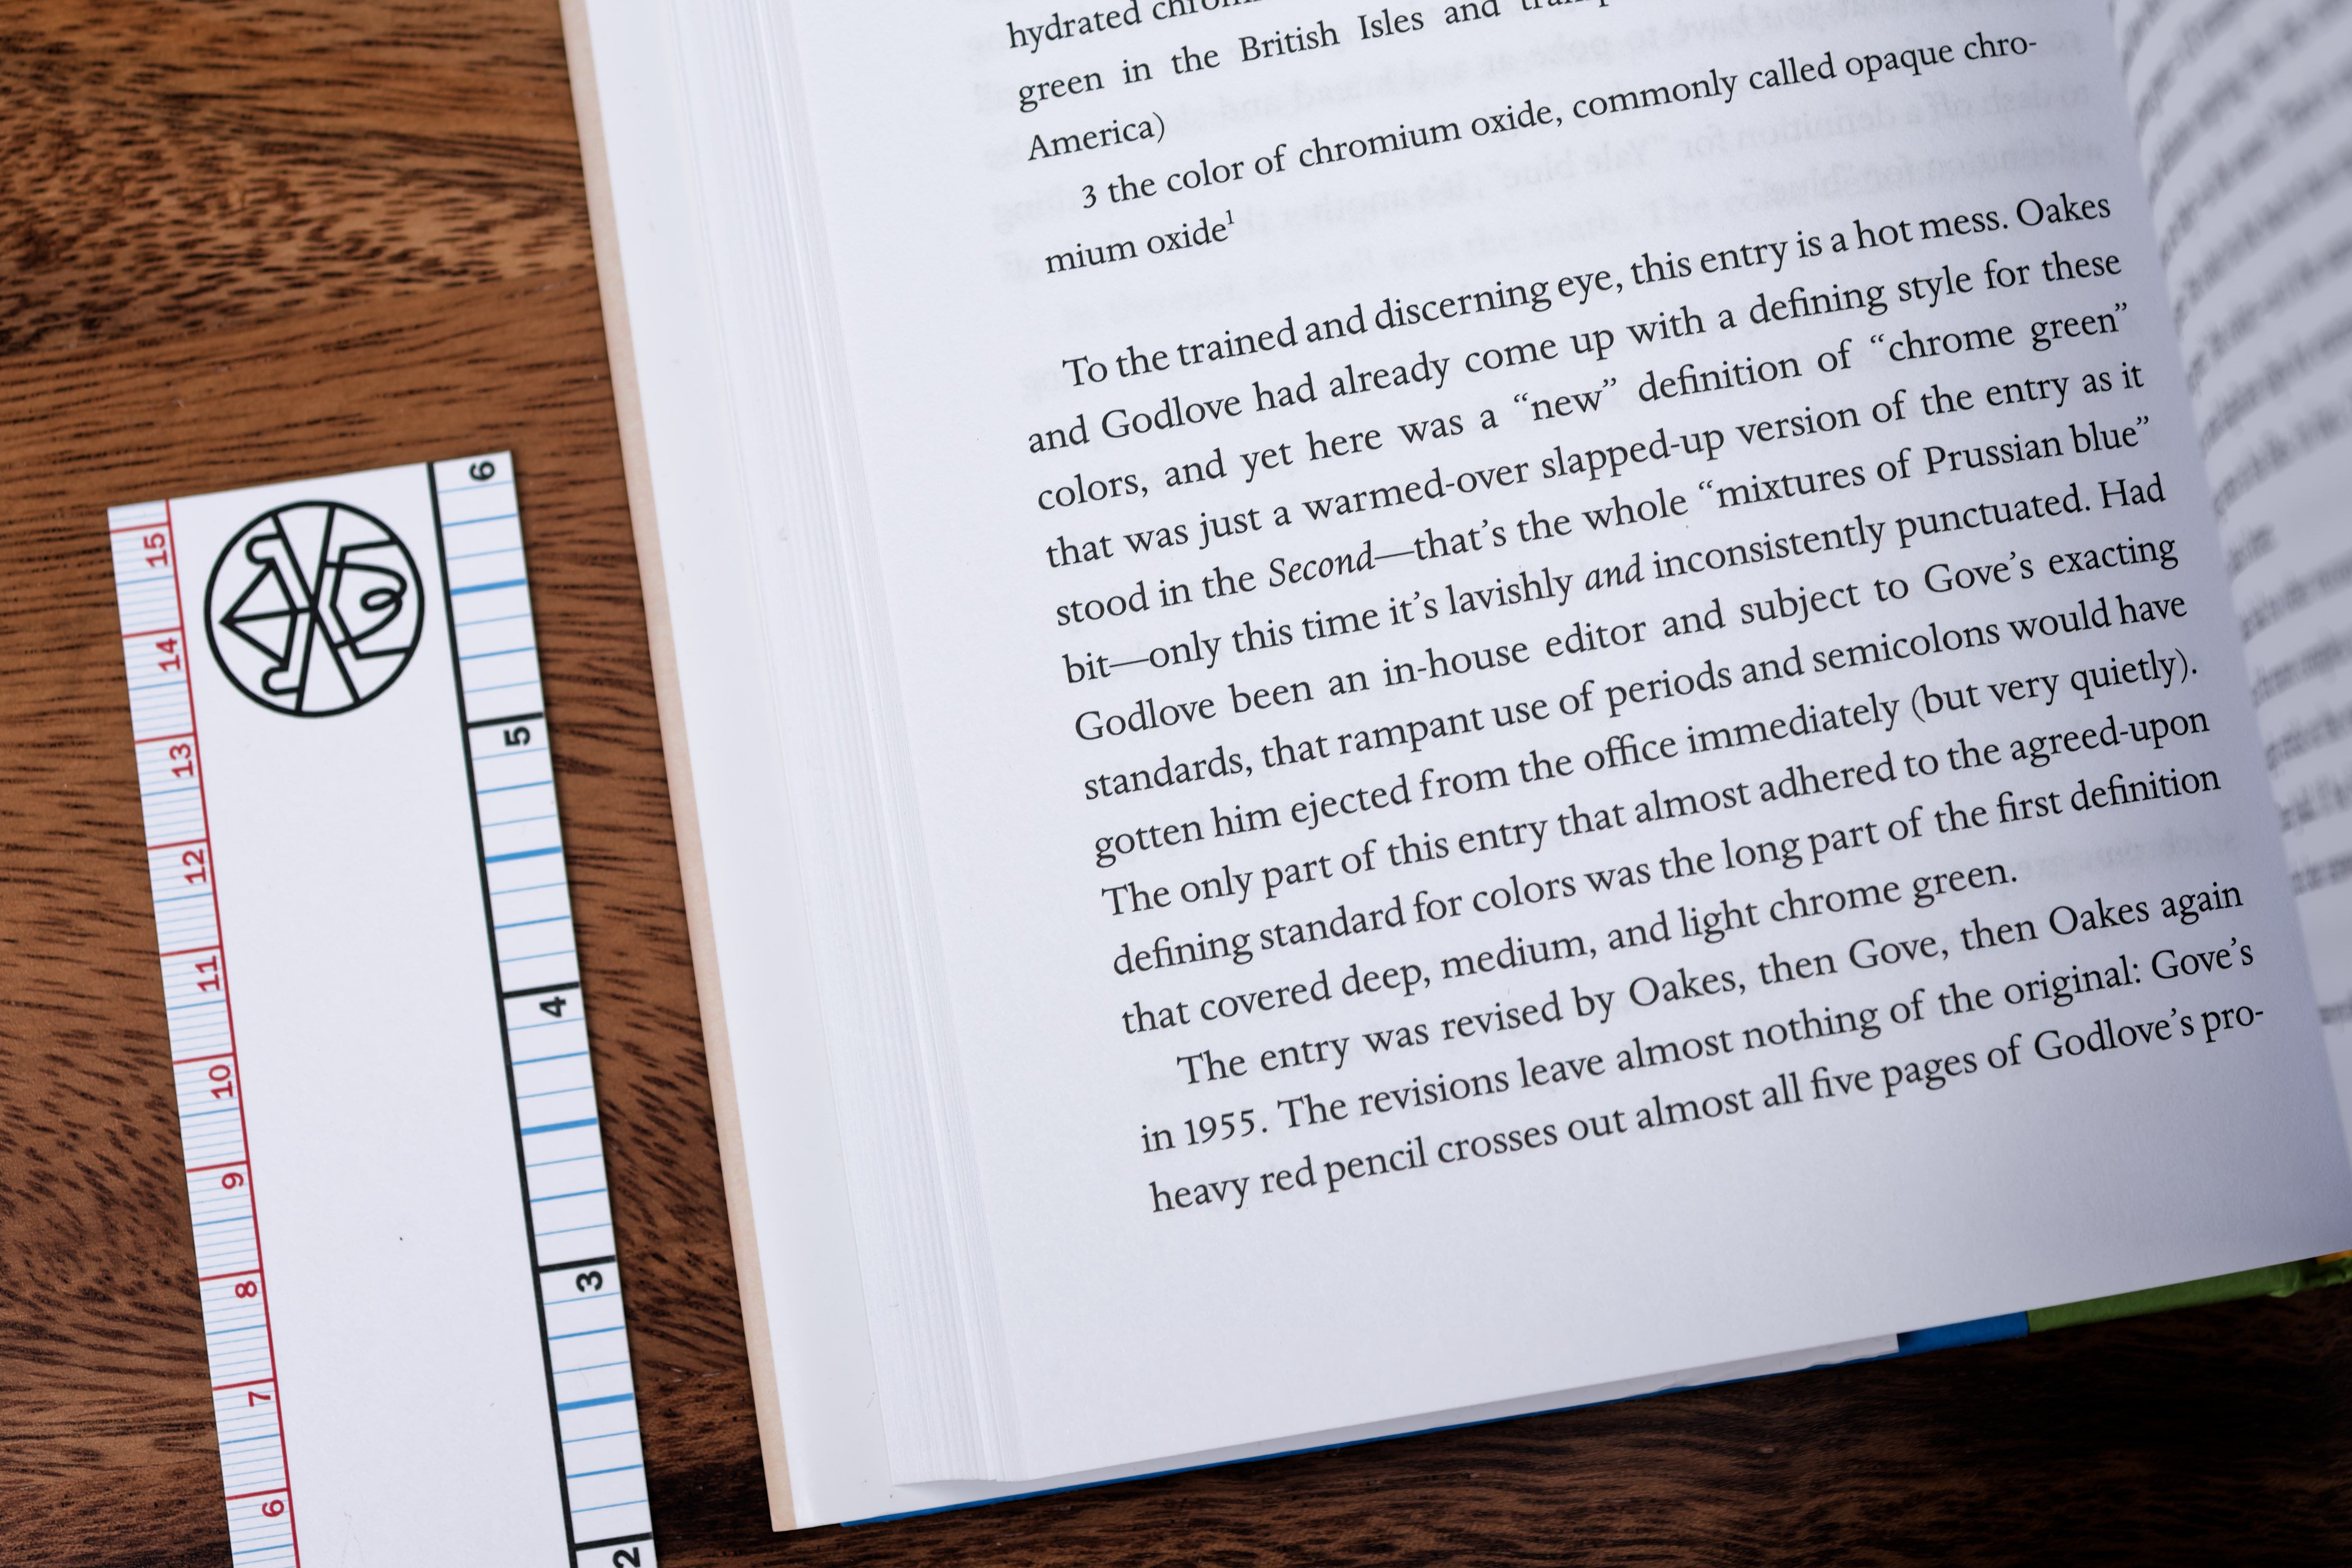 hydrated
green in the British Isles and
America)
3 the color of chromium oxide, commonly called opaque chro-
mium oxide1
To the trained and discerning eye, this entry is a hot mess. Oakes
and Godlove had already come up with a defining style for these
colors, and yet here was a “new” definition of “chrome green”
that was just a warmed-over slapped-up version of the entry as it
stood in the Second—that’s the whole “mixtures of Prussian blue”
bit—only this time it’s lavishly and inconsistently punctuated. Had
Godlove been an in-house editor and subject to Gove’s exacting
standards, that rampant use of periods and semicolons would have
gotten him ejected from the office immediately (but very quietly).
The only part of this entry that almost adhered to the agreed-upon
defining standard for colors was the long part of the first definition
that covered deep, medium, and light chrome green.
The entry was revised by Oakes, then Gove, then Oakes again
in 1955. The revisions leave almost nothing of the original: Gove’s
heavy red pencil crosses out almost all five pages of Godlove’s pro-
15
14
13
12
11
10
9
8
7
6
6
5
4
3
2